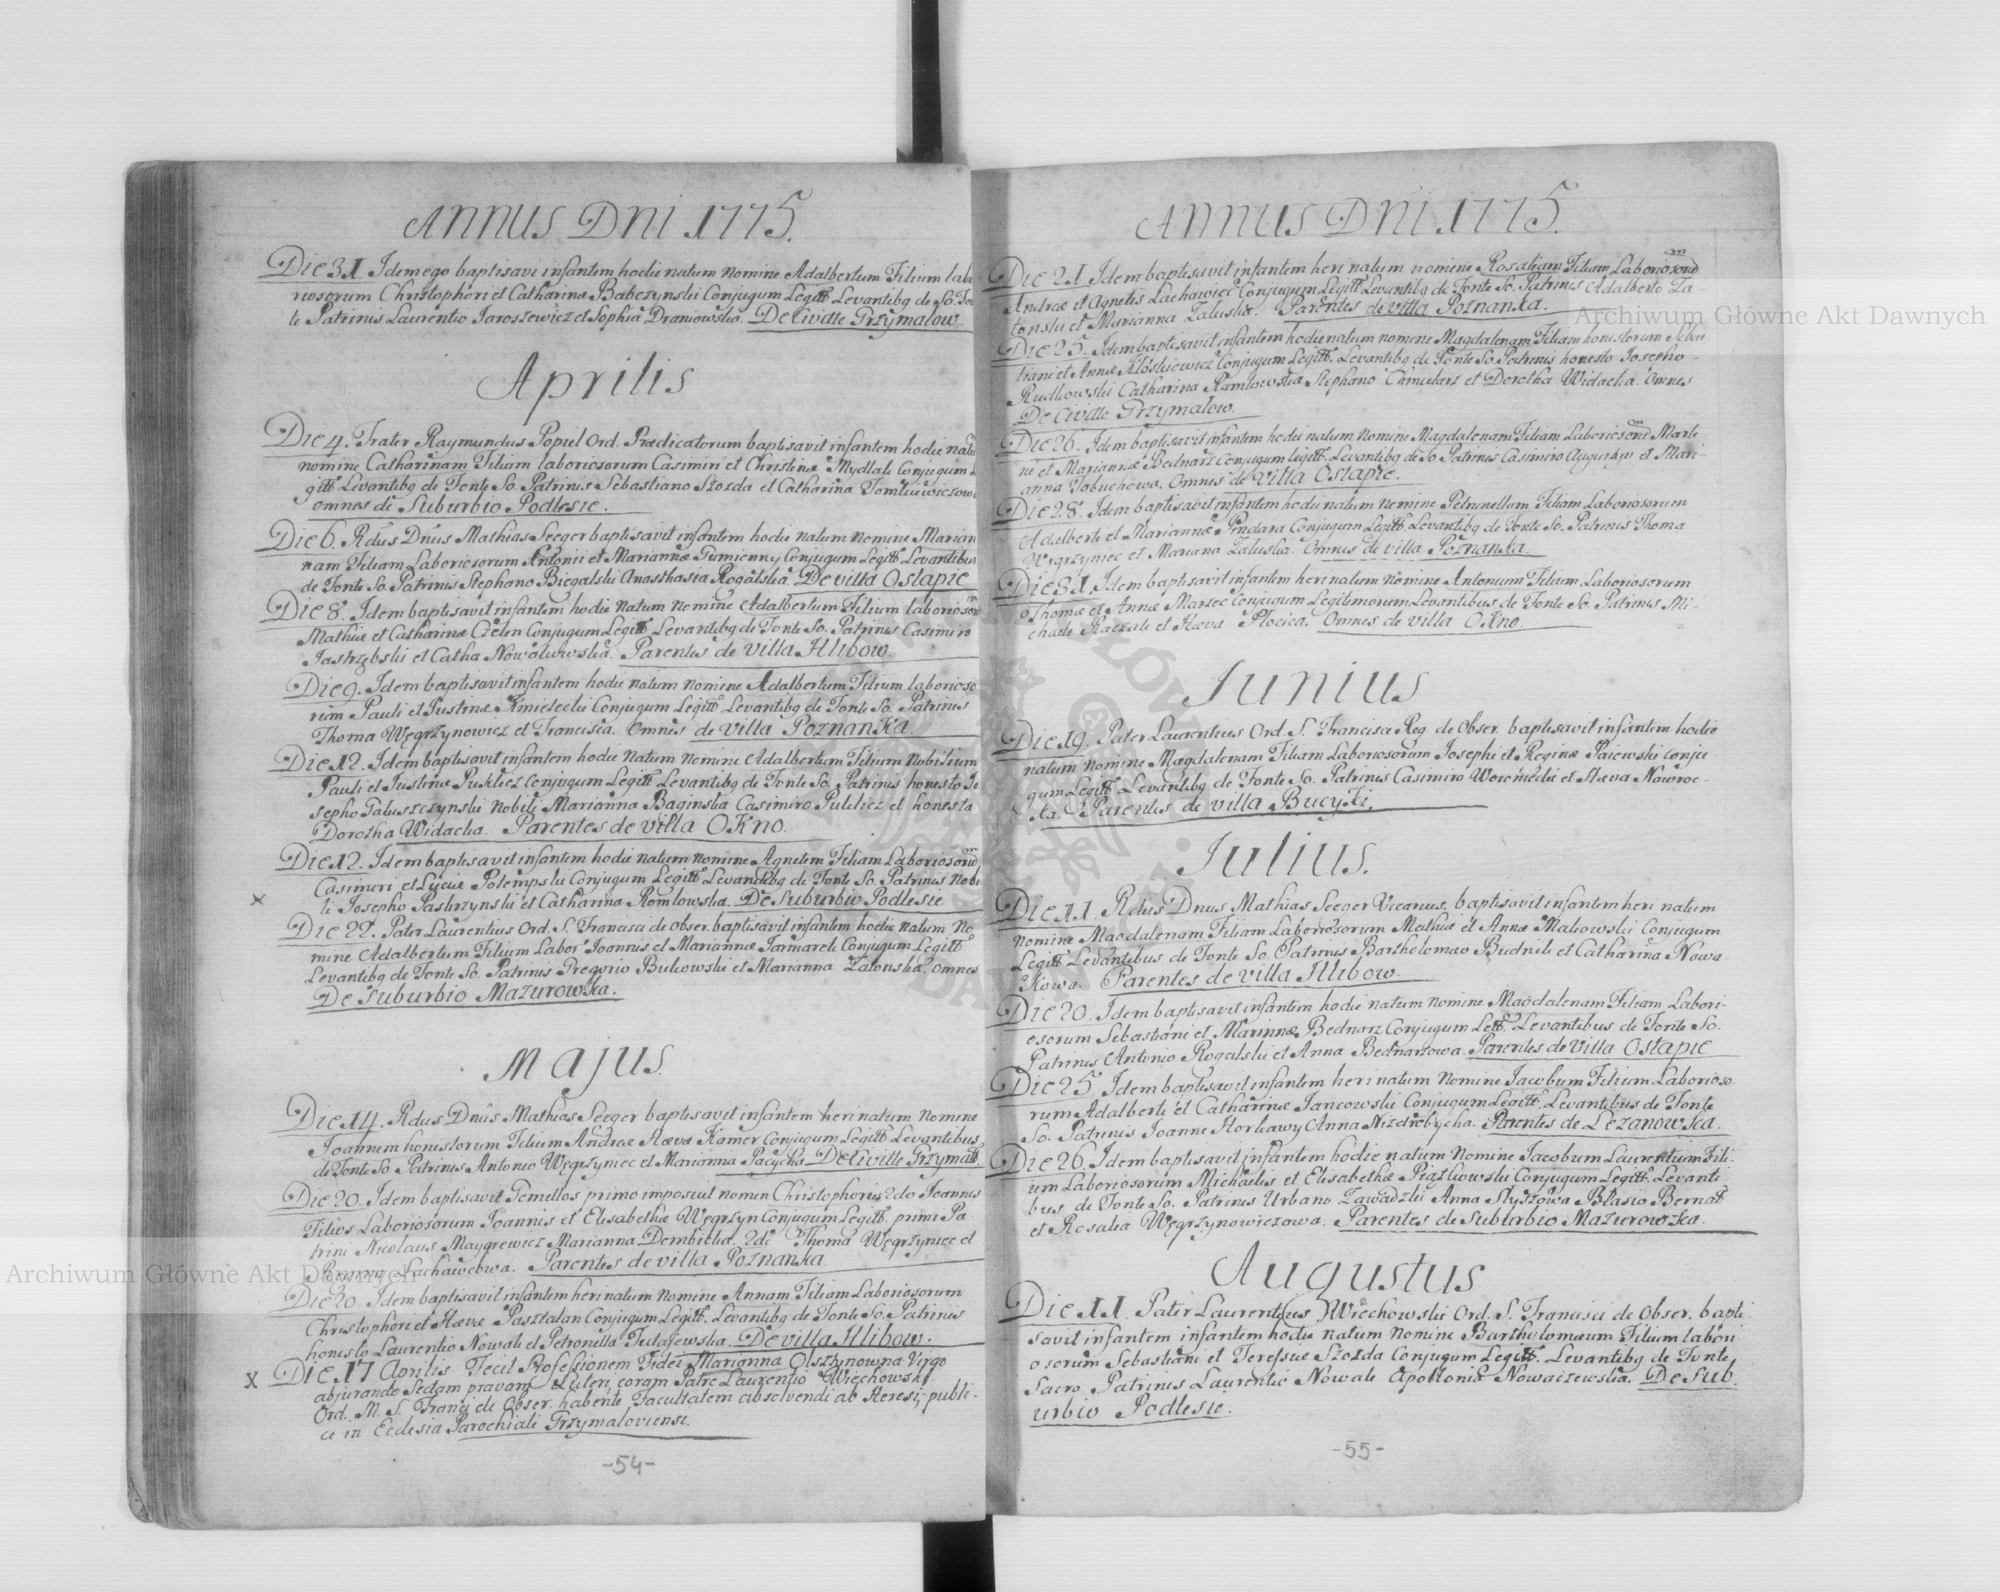 ANNUS DNI 1775.
Die 31. Idem ego baptisavi infantem hodie natum nomine Adalbertum Filium labo
riosorum Christophori et Catharinæ Babczynski Conjugum Legitt Levantibq de So. Fon
te Patrinis Laurentio Jaroszewicz et Sophia Draniowska. De Civitte Grzymalow.
Aprilis
Die 4. Frater Raymundus Popiel Ord. Prædicatorum baptisavit infantem hodie natu
nomine Catharinam Filiam laboriosorum Casimiri et Christinæ Mydlak Conjugum Le
gitt Levantibq de Fonte So. Patrinis Sebastiano Szozda et Catharina Tomkiewiczowa
omnes de Suburbio Podlesie.
Die 6. Rdus Dnus Mathias Seeger baptisavit infantem hodie natum nomine Marian
nam Filiam Laboriosorum Antonii et Mariannæ Gumienny Conjugum Legitt Levantibus
de Fonte So. Patrinis Stephano Biegalski Anasthasia Rogalska. De villa Ostapie
Die 8. Idem baptisavit infantem hodie natum nomine Adalbertum Filium laborioso
Mathiæ et Catharinæ Czelen Conjugum Legitt Levantibq de Fonte So. Patrinis Casimiro
Jastrzębski et Catha Nowakowska. Parentes de villa Hlibow.
Die 9. Idem baptisavit infantem hodie natum nomine Adalbertum Filium laborioso
rum Pauli et Justinæ Kmieciecki Conjugum Legitt Levantibq de Fonte So. Patrinis
Thoma Węgrzynowicz et Francisca. Omnes de villa Poznanka.
Die 12. Idem baptisavit infantem hodie natum nomine Adalbertum Filium Nobilium
Pauli et Justinæ Puklicz Conjugum Legitt Levantibq de Fonte So. Patrinis honesto Jo
sepho Paluszczynski Nobili Marianna Baginska Casimiro Puklicz et honesta
Dorotha Widacka. Parentes de villa OKno.
Die 12. Idem baptisavit infantem hodie natum nomine Agnetem Filiam Laboriosorum
x Casimiri et Luciæ Potempski Conjugum Legitt Levantibq de Fonte So. Patrinis Nobi
li Josepho Pastrzynski et Catharina Romlowska. De Suburbio Podlesie
Die 22. Pater Laurentius Ord. S. Francisci de Obser. baptisavit infantem hodie natum No
mine Adalbertum Filium Labor Joannis et Mariannæ Jarmarek Conjugum Legitt
Levantibq de Fonte So. Patrinis Gregorio Bukowski et Marianna Zalonska Omnes
De Suburbio Mazurowka.
Majus.
Die 14. Rdus Dnus Mathias Seeger baptisavit infantem heri natum nomine
Joannem honestorum Filium Andreæ Hævæ Kamer Conjugum Legitt Levantibus
de Fonte So. Patrinis Antonio Węgrzyniec et Marianna Pacycha De Civitte Grzymałł
Die 20. Idem baptisavit Gemellos primo imposuit nomen Christophoris 2do Joannis
Filios Laboriosorum Joannis et Elisabethæ Węgrzyn Conjugum Legitt. primi Pa
trini Nicolaus Maygrewicz Marianna Dembicka. 2di Thoma Węgrzyniec et
Rosina Lachawcowa. Parentes de villa Poznanka.
Die 20. Idem baptisavit infantem heri natum nomine Annam Filiam Laboriosorum
Christophori et Hævæ Pasztalan Conjugum Legitt. Levantibq de Fonte So. Patrinis
honesto Laurentio Nowak et Petronella De villa Hlibow.
x Die 17 Aprilis Fecit Professionem Fidei Marianna Olszynowna Virgo
abjurando Sectam pravam Luteri, coram Patre Laurentio Więchowski
Ord. M. S. Franci de Obser. habente Facultatem absolvendi ab Heresi, publi-
ce in Ecclesia Parochiali Grzymaloviensi.
-54-
ANNUS DNI 1775.
Die 21. Idem baptisavit infantem heri natum nomine Rosaliam Filiam Laboriosorum
Andreæ et Agnetis Lachawiec Conjugum Legitt Levantibq de Fonte So. Patrinis Adalberto Za-
lonski et Marianna Zaluska. Parentes de villa Poznanka.
Die 25. Idem baptisavit infantem hodie natum nomine Magdalenam Filiam honestorum Sebas
tiani et Annæ Kloskiewicz Conjugum Legitt. Levantibq de Fonte So Patrinis honesto Josepho
Rudkowski Catharina Ramlowska Stephano Chmielarz et Dorotha Widacka. Omnes
De Civitte Grzymalow.
Die 26. Idem baptisavit infantem hodie natum nomine Magdalenam Filiam Laboriosorum Marti
ni et Mariannæ Bednarz Conjugum legitt. Levantibq de So Patrinis Casimiro Augustyn et Mari-
anna Toluchowa. Omnes de villa Ostapie.
Die 28. Idem baptisavit infantem hodie natum nomine Petrunellam Filiam Laboriosorum
Adalberti et Mariannæ Pindara Conjugum Legitt. Levantibq de Fonte So. Patrinis Thoma
Węgrzyniec et Mariana Zaluska. Omnes de villa Poznanka.
Die 31. Idem baptisavit infantem heri natum nomine Antonium Filium Laboriosorum
Thomæ et Annæ Marzec Conjugum Legitimorum Levantibus de Fonte So. Patrinis Mi-
chaele Kaczale et Hæva Plocica. Omnes de villa OKno.
Junius
Die 19. Pater Laurentius Ord. S. Francisci Reg. de Obser. baptisavit infantem hodie
natum nomine Magdalenam Filiam Laboriosorum Josephi et Reginæ Paiewski conju-
gum Legitt Levantibq de Fonte So. Patrinis Casimiro Woromecki et Hæva Noworoc-
ka. Parentes de villa BucyKi.
Julius.
Die 11. Rdus Dnus Mathias Seeger Vicarius. baptisavit infantem heri natum
nomine Magdalenam Filiam Laboriosorum Mathiæ et Annæ Makowski Conjugum
Legitt Levantibus de Fonte So. Patrinis Bartholomeo Budnik et Catharina Nowa
kowa. Parentes de villa Hlibow.
Die 20. Idem baptisavit infantem hodie natum nomine Magdalenam Filiam Labori-
osorum Sebastiani et Marinnæ Bednarz Conjugum Lett. Levantibus de Fonte So.
Patrinis Antonio Rogalski et Anna Bednarzowa. Parentes de villa Ostapie
Die 25. Idem baptisavit infantem heri natum nomine Jacobum Filium Laborioso
rum Adalberti et Catharinæ Jancowski Conjugum Legitt. Levantibus de Fonte
So. Patrinis Joanne Horkawy Anna Nizdrobycha. Parentes de Lezanowka.
Die 26. Idem baptisavit infantem hodie natum nomine Jacobum Laurentium Fili-
um Laboriosorum Michaelis et Elisabethæ Piątkowski Conjugum Legitt. Levanti
bus de Fonte So. Patrinis Urbano Zawadzki Anna Slyszowa Blasio Bernat
et Rosalia Węgrzynowiczowa. Parentes de Suburbio Mazurowzka.
Augustus
Die 11. Pater Laurentius Więchowski Ord. S. Francisci de Obser. bapti-
savit infantem infantem hodie natum nomine Bartholomæum Filium labori
osorum Sebastiani et Teressiæ Szozda Conjugum Legitt. Levantibq de Fonte
Sacro Patrinis Laurentio Nowak Apollonia Nowaczewska. De Sub.
urbio Podlesie.
-55-
Archiwum Główne Akt Dawnych
Archiwum Główne Akt Dawnych